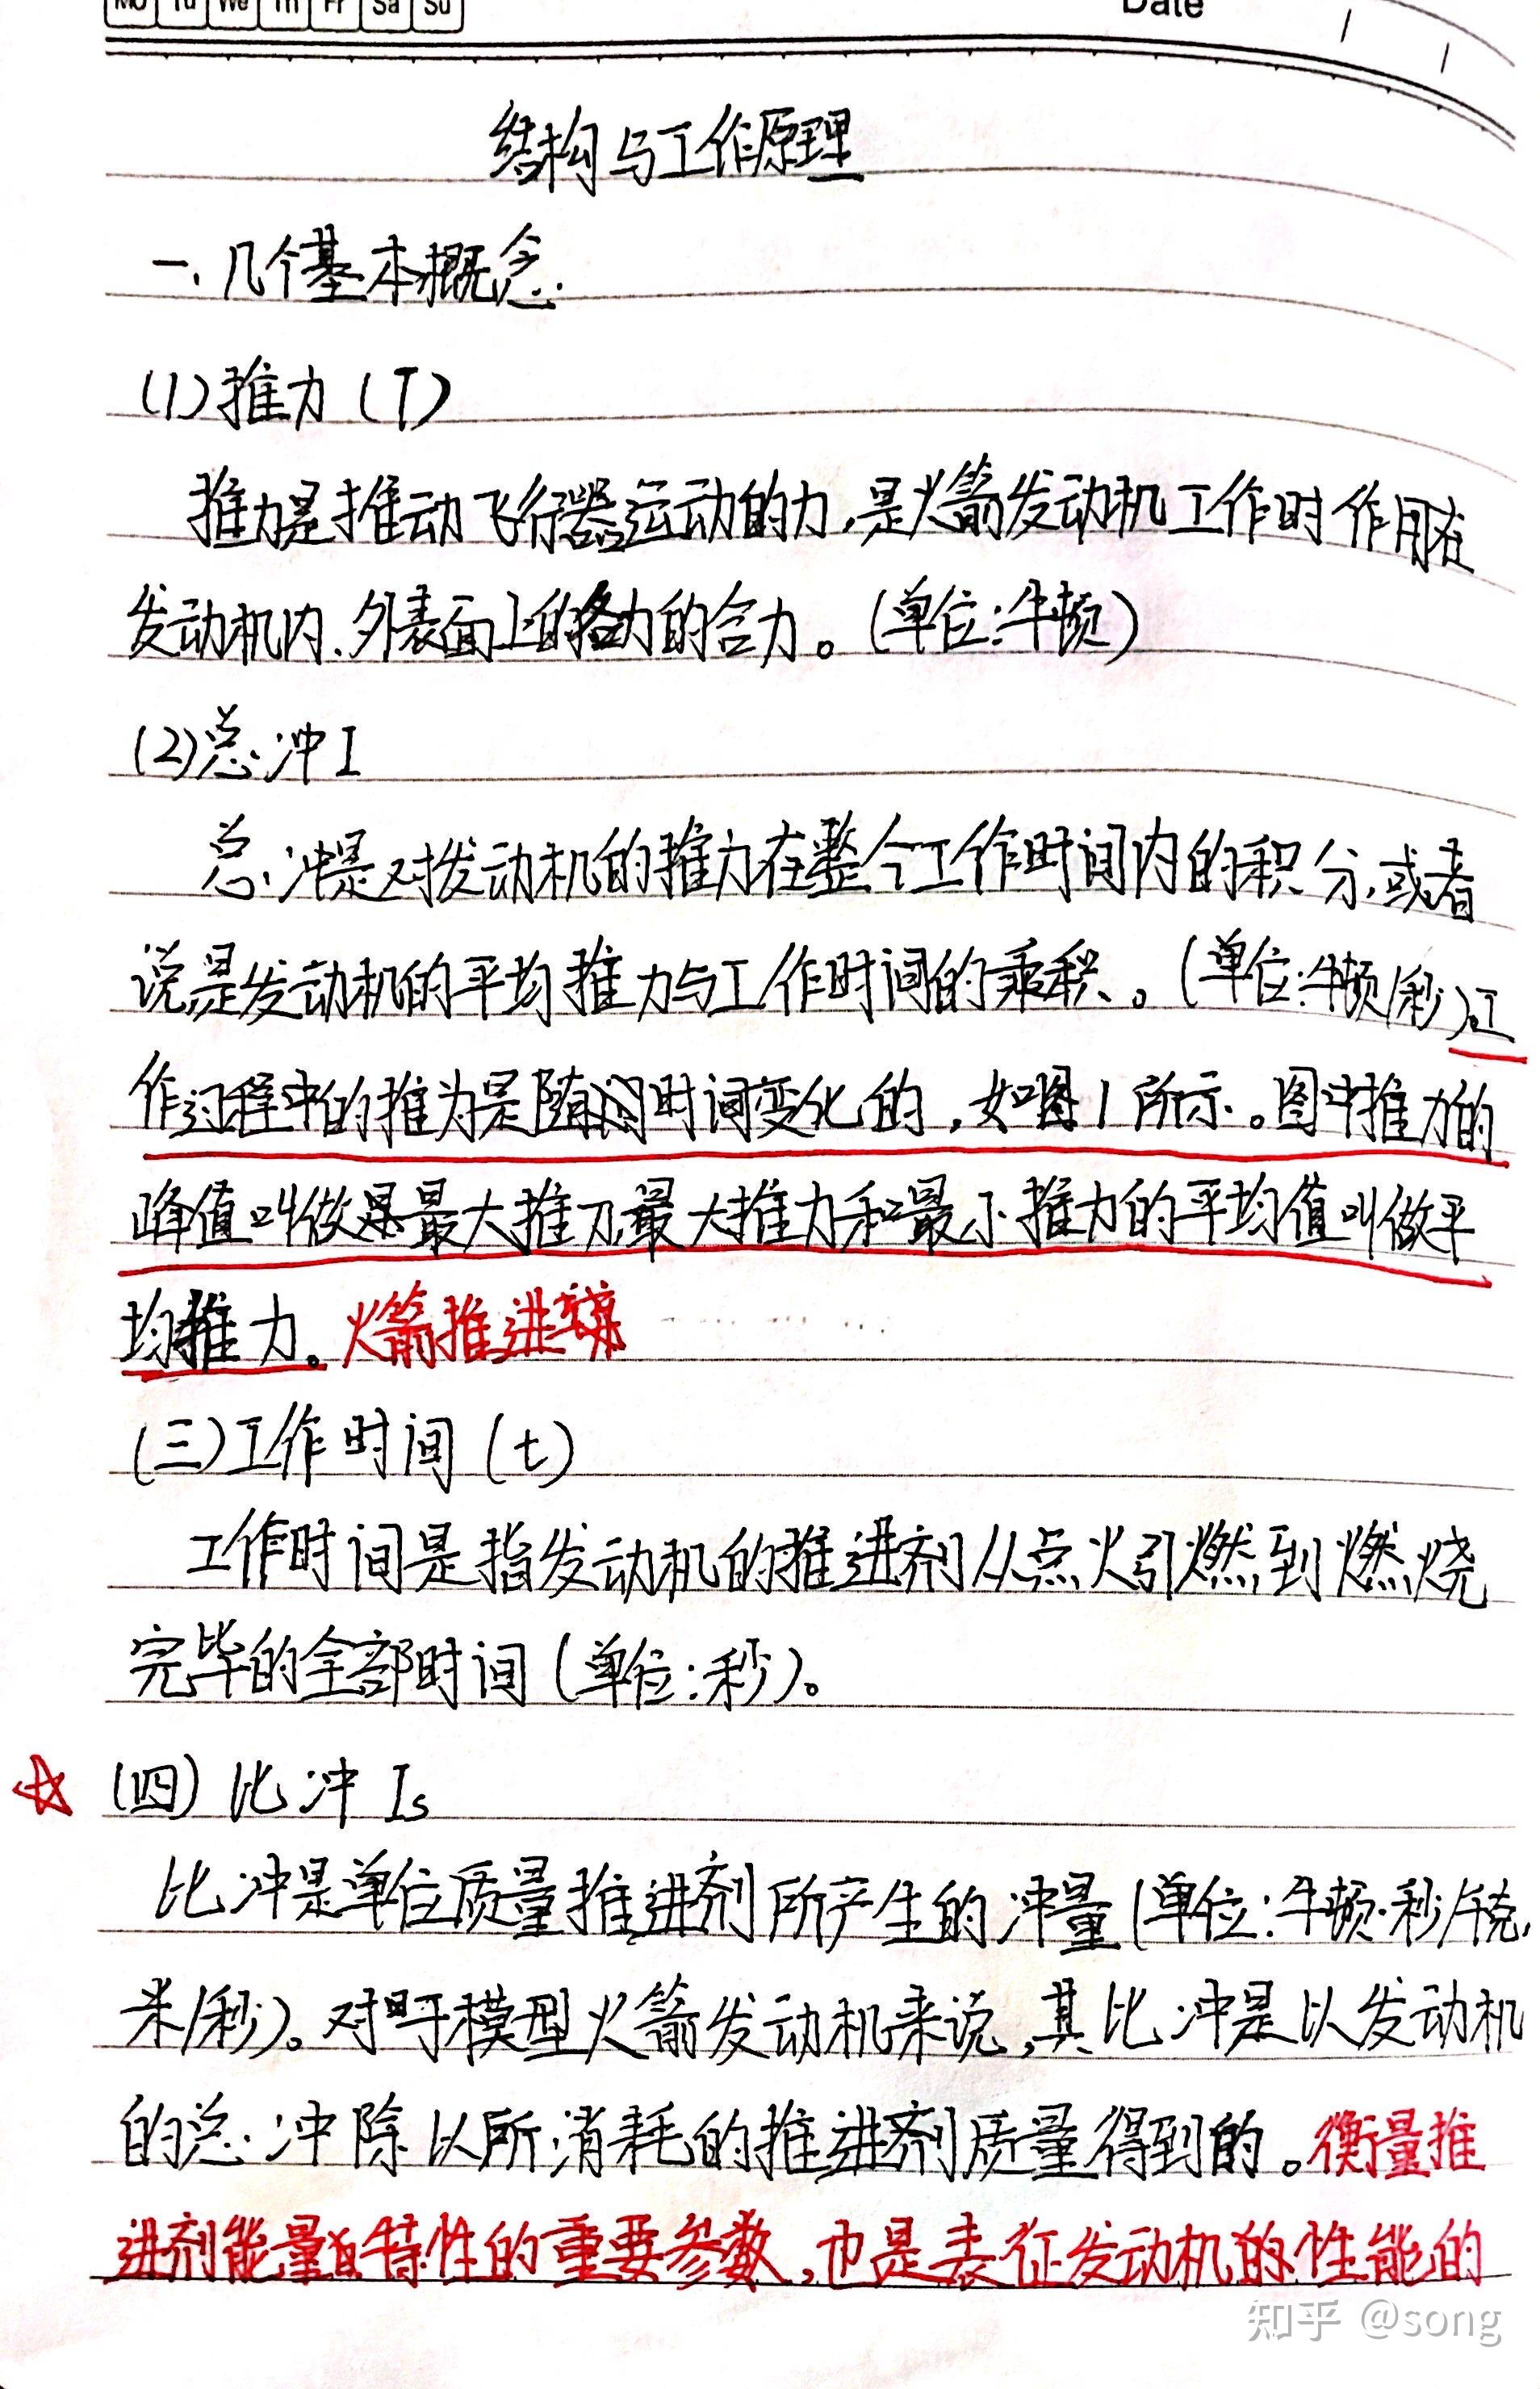 Mo Tu We Th Fr Sa Su
Date
结构与工作原理
一、几个基本概念.
(1)推力(T)
推力是推动飞行器运动的力,是火箭发动机工作时作用在
发动机内、外表面上的各力的合力。(单位:牛顿)
(2)总冲I
总冲是对发动机的推力在整个工作时间内的积分,或者
说是发动机的平均推力与工作时间的乘积。(单位:牛顿/秒)。工
作过程中的推力是随时间变化的,如图1所示。图中推力的
峰值叫做最大推力,最大推力和最小推力的平均值叫做平
均推力。火箭推进
(三)工作时间(t)
工作时间是指发动机的推进剂从点火引燃到燃烧
完毕的全部时间(单位:秒)。
(四)比冲Is
比冲是单位质量推进剂所产生的冲量(单位:牛顿·秒/千克,
米/秒)。对于模型火箭发动机来说,其比冲是以发动机
的总冲除以所消耗的推进剂质量得到的。衡量推
进剂能量特性的重要参数,也是表征发动机的性能的
知乎 @song